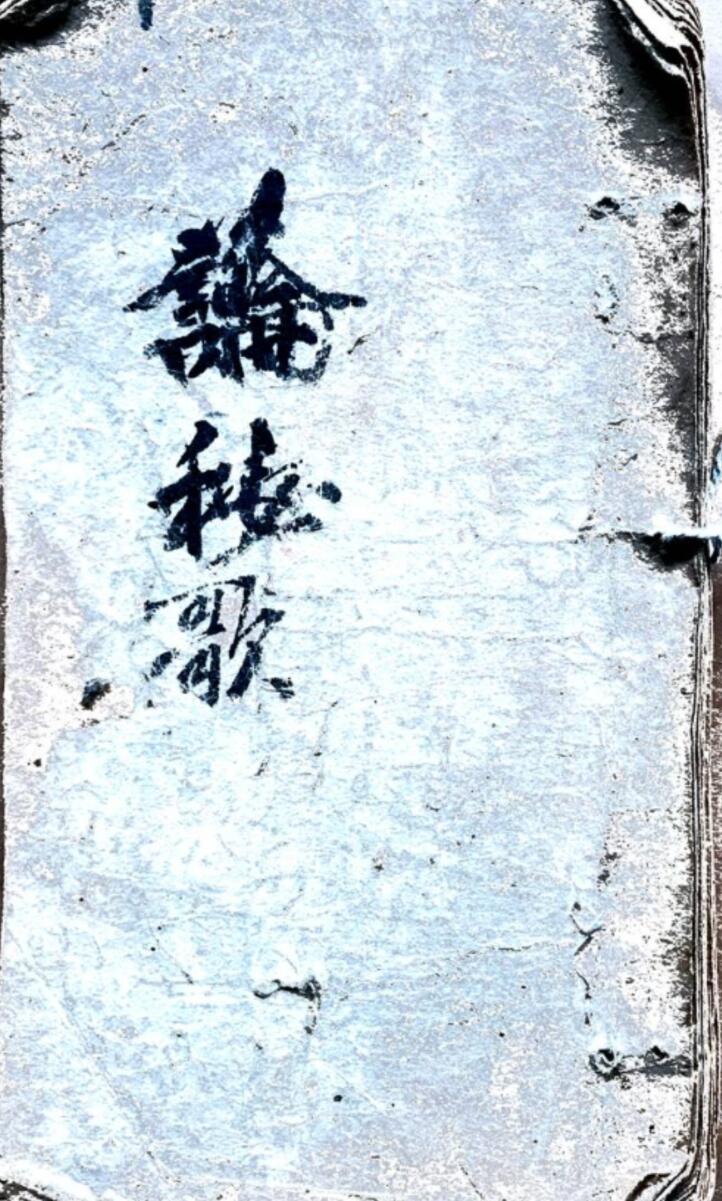 論秘歌